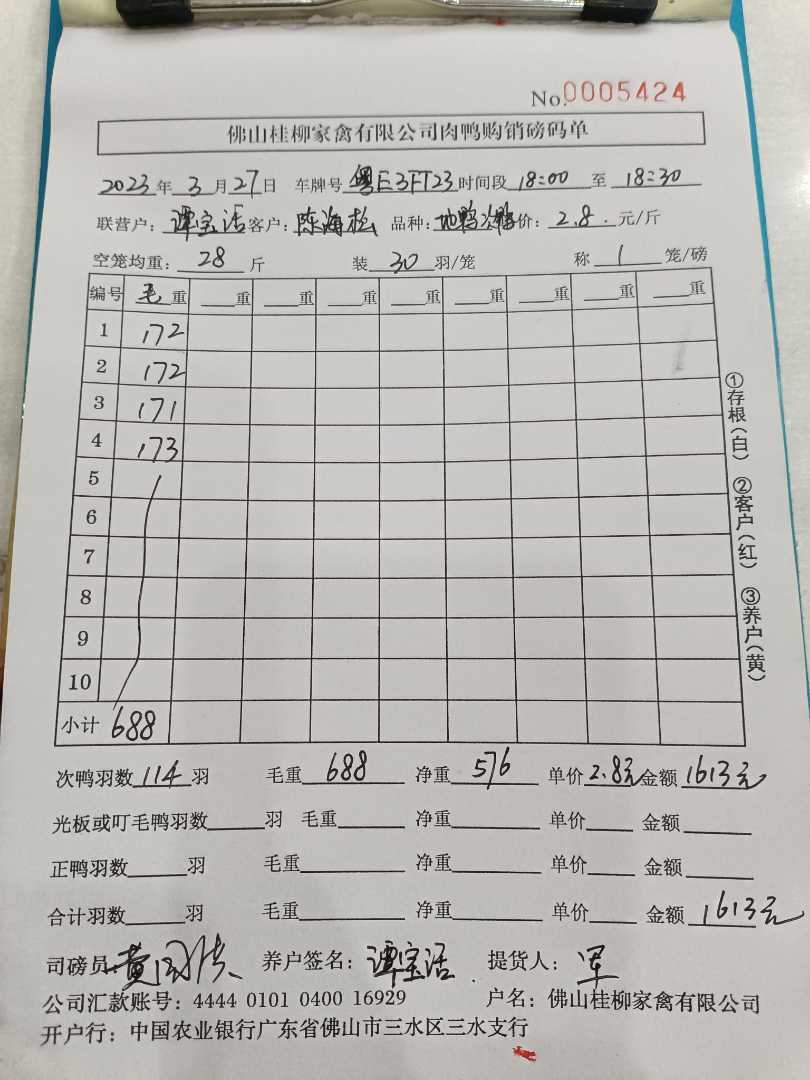 No.0005424
佛山桂柳家禽有限公司肉鸭购销磅码单
2023年3月27日 车牌号 粤E3FT23 时间段 18:00 至 18:30
联营户: 谭宝活 客户: 陈海松 品种: 地鸭次鸭 价: 2.8. 元/斤
空笼均重: 28 斤 装 30 羽/笼 称 1 笼/磅
编号 毛重 重 重 重 重 重 重 重 重
1 172
2 172
3 171
4 173
5
6
7
8
9
10
小计 688
次鸭羽数 114 羽 毛重 688 净重 576 单价 2.8元 金额 1613元
光板或叮毛鸭羽数 羽 毛重 净重 单价 金额
正鸭羽数 羽 毛重 净重 单价 金额
合计羽数 羽 毛重 净重 单价 金额 1613元
司磅员: 黄 养户签名: 谭宝活 提货人: 军
公司汇款账号: 4444 0101 0400 16929 户名: 佛山桂柳家禽有限公司
开户行: 中国农业银行广东省佛山市三水区三水支行
①存根(白) ②客户(红) ③养户(黄)